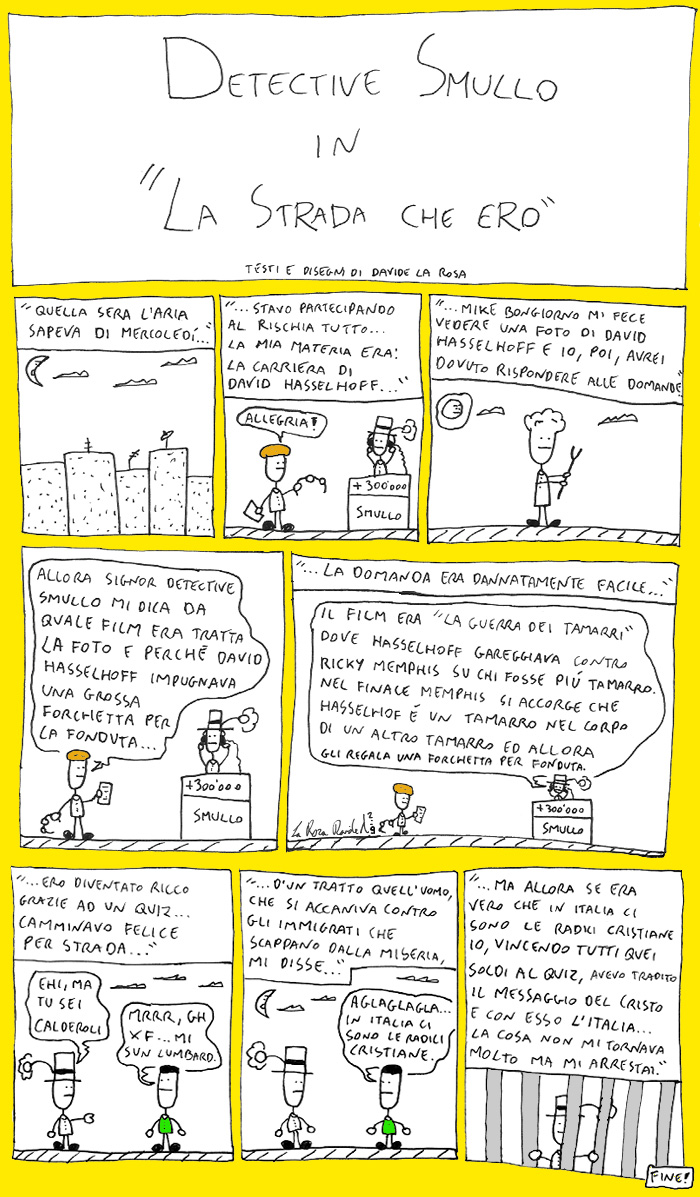 DETECTIVE SMULLO
IN
"LA STRADA CHE ERO"
TESTI E DISEGNI DI DAVIDE LA ROSA
"QUELLA SERA L'ARIA
SAPEVA DI MERCOLEDÍ..."
"...STAVO PARTECIPANDO
AL RISCHIA TUTTO...
LA MIA MATERIA ERA:
LA CARRIERA DI
DAVID HASSELHOFF..."
ALLEGRIA!
+300'000
SMULLO
"...MIKE BONGIORNO MI FECE
VEDERE UNA FOTO DI DAVID
HASSELHOFF E IO, POI, AVREI
DOVUTO RISPONDERE ALLE DOMANDE"
ALLORA SIGNOR DETECTIVE
SMULLO MI DICA DA
QUALE FILM ERA TRATTA
LA FOTO E PERCHÉ DAVID
HASSELHOFF IMPUGNAVA
UNA GROSSA
FORCHETTA PER
LA FONDUTA...
+300'000
SMULLO
"...LA DOMANDA ERA DANNATAMENTE FACILE..."
IL FILM ERA "LA GUERRA DEI TAMARRI"
DOVE HASSELHOFF GAREGGIAVA CONTRO
RICKY MEMPHIS SU CHI FOSSE PIÚ TAMARRO.
NEL FINALE MEMPHIS SI ACCORGE CHE
HASSELHOF É UN TAMARRO NEL CORPO
DI UN ALTRO TAMARRO ED ALLORA
GLI REGALA UNA FORCHETTA PER FONDUTA.
+300'000
SMULLO
La Rosa Davide
"...ERO DIVENTATO RICCO
GRAZIE AD UN QUIZ...
CAMMINAVO FELICE
PER STRADA..."
EHI, MA
TU SEI
CALDEROLI
MRRR, GH
XF...MI
SUN LUMBARD.
"...D'UN TRATTO QUELL'UOMO,
CHE SI ACCANIVA CONTRO
GLI IMMIGRATI CHE
SCAPPANO DALLA MISERIA,
MI DISSE..."
AGLAGLAGLA...
IN ITALIA CI
SONO LE RADICI
CRISTIANE.
"...MA ALLORA SE ERA
VERO CHE IN ITALIA CI
SONO LE RADICI CRISTIANE
IO, VINCENDO TUTTI QUEI
SOLDI AL QUIZ, AVEVO TRADITO
IL MESSAGGIO DEL CRISTO
E CON ESSO L'ITALIA...
LA COSA NON MI TORNAVA
MOLTO MA MI ARRESTAI."
FINE!